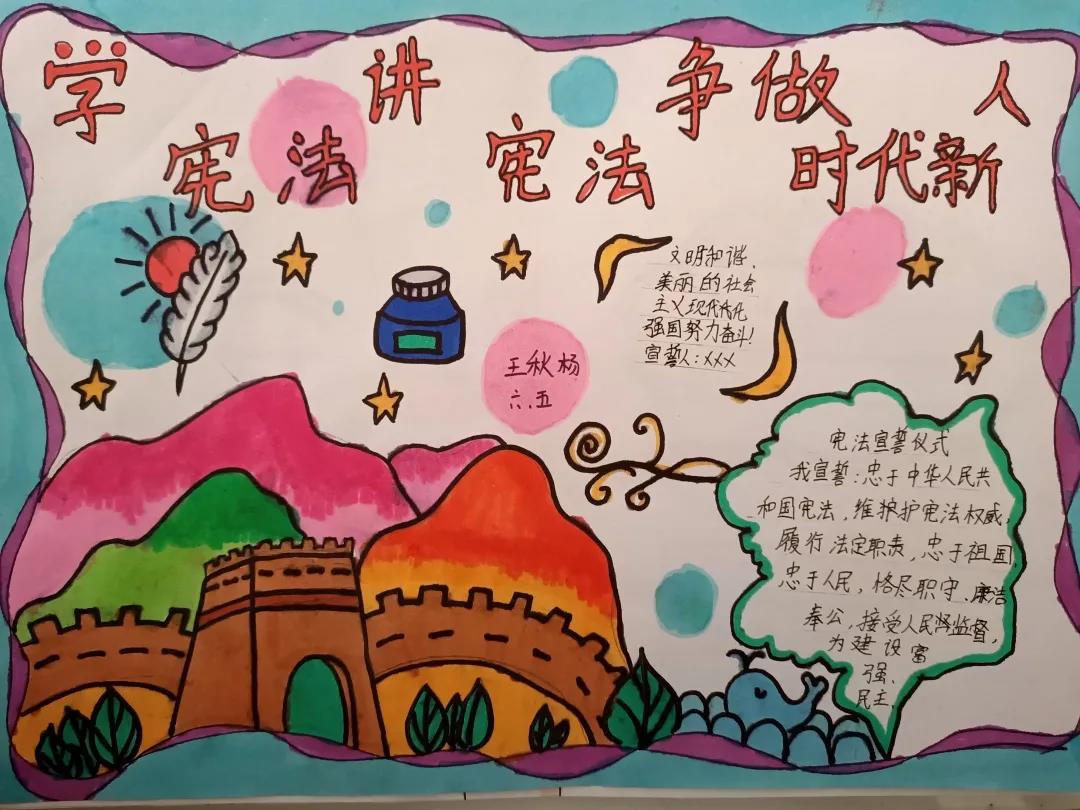 学宪法 讲宪法 争做时代新人
文明和谐、
美丽的社会
主义现代化
强国努力奋斗!
宣誓人:xxx
王秋杨
六、五
宪法宣誓仪式
我宣誓:忠于中华人民共
和国宪法,维护宪法权威,
履行法定职责,忠于祖国
忠于人民,恪尽职守、廉洁
奉公,接受人民监督,
为建设富
强、
民主、